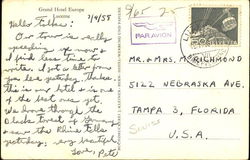 Grand Hotel Europe
Lucerne
7/9/55
Hello Folks:
Our tour is really
speeding up now &
I find less time to
write. Got a letter from
you yesterday, thanks.
This is our hotel & is one
of the best ones yet.
We came through the
Black Forest of Germany
& saw the Rhine Falls
yesterday, very beautiful
Love, Pete
PAR AVION
MR. & MRS. M. RICHMOND
5122 NEBRASKA AVE.
TAMPA 3, FLORIDA
U.S.A.